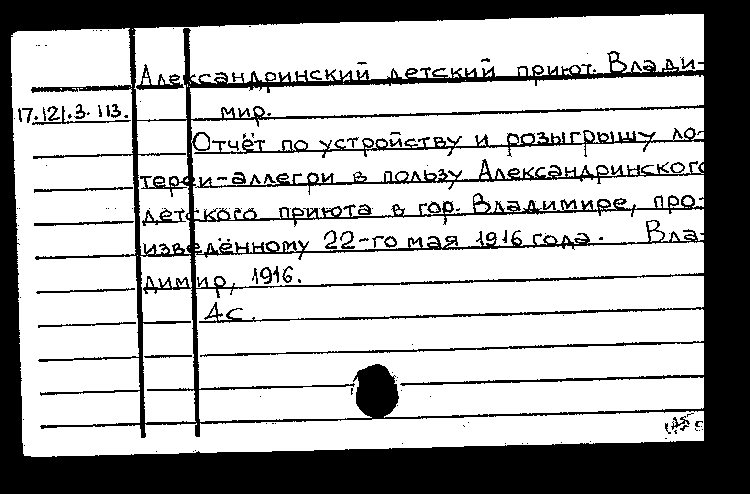 Александринский детский приют. Влади-
17.121.3.113. мир.
Отчёт по устройству и розыгрышу ло-
тереи-аллегри в пользу Александринского
детского приюта в гор. Владимире, про-
изведённому 22-го мая 1916 года. Вла-
димир, 1916.
4с.